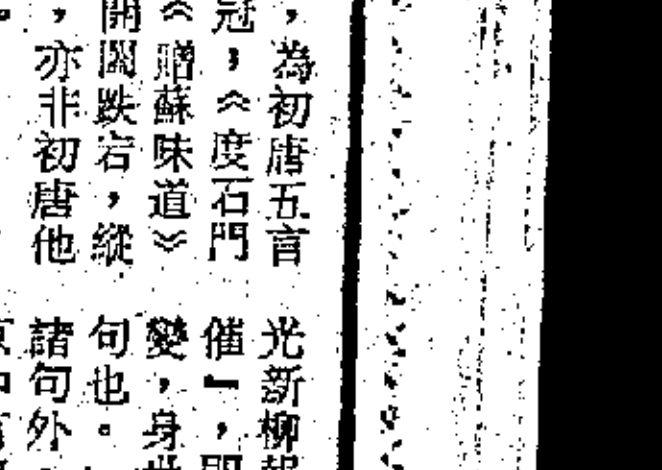 ，為初唐五言
冠，《度石門
《贈蘇味道》
開闔跌宕，縱
，亦非初唐他
。
光新柳報
催』，即
變，身世
句也。
諸句外